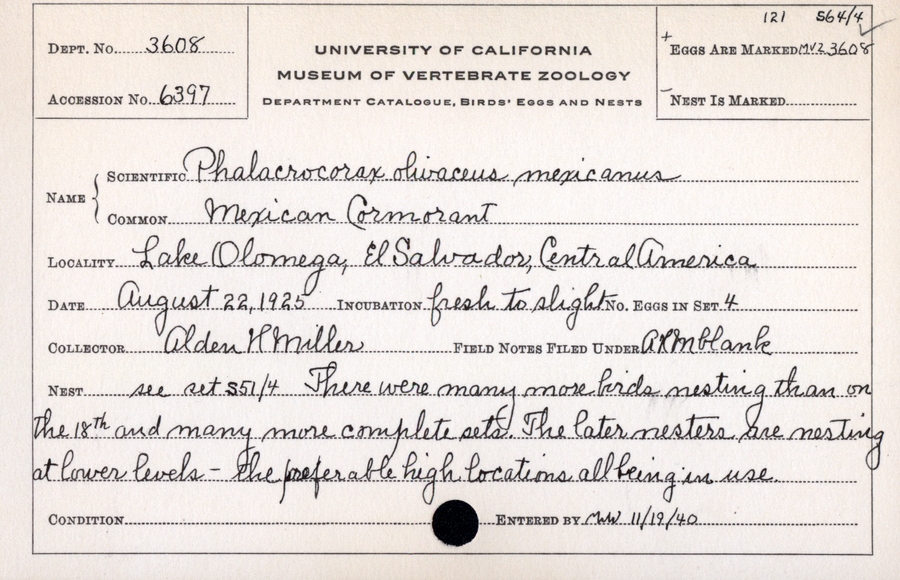 121 S64/4
DEPT. No. 3608
UNIVERSITY OF CALIFORNIA
+ EGGS ARE MARKED MVZ 3608
MUSEUM OF VERTEBRATE ZOOLOGY
ACCESSION No. 6397
DEPARTMENT CATALOGUE, BIRDS' EGGS AND NESTS
- NEST IS MARKED
NAME { SCIENTIFIC Phalacrocorax olivaceus mexicanus
COMMON Mexican Cormorant
LOCALITY Lake Olomega, El Salvador, Central America
DATE August 22, 1925 INCUBATION fresh to slight No. EGGS IN SET 4
COLLECTOR Alden H Miller FIELD NOTES FILED UNDER AHM blank
NEST see set S51/4 There were many more birds nesting than on
the 18th and many more complete sets. The later nesters are nesting
at lower levels - the preferable high locations all being in use.
CONDITION ENTERED BY MW 11/19/40